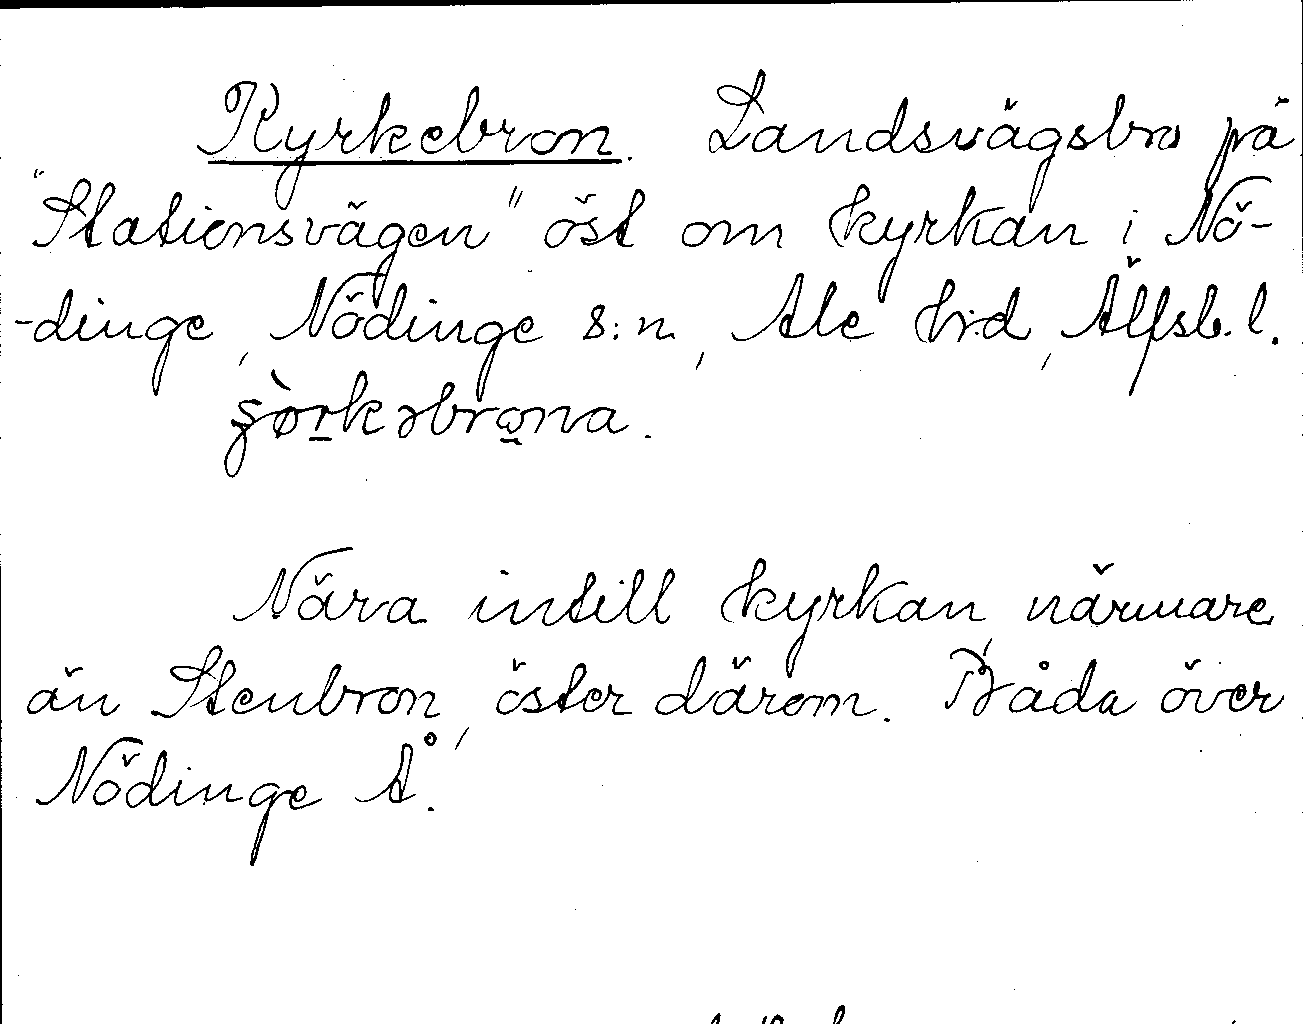 Kyrkebron. Landsvägsbro på
"Stationsvägen" öst om kyrkan i Nö-
-dinge, Nödinge s:n, Ale h:d, Älfsb. l.
Nära intill kyrkan, närmare
än Stenbron, öster därom. Båda över
Nödinge Å.